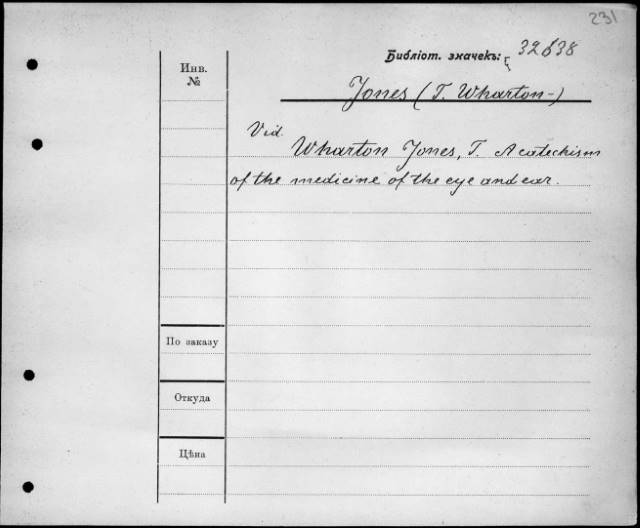 231
Библіот. значекъ: 32638
Инв.
№
Jones (T. Wharton-)
Vid.
Wharton Jones, T. A catechism
of the medicine of the eye and ear.
По заказу
Откуда
Цѣна